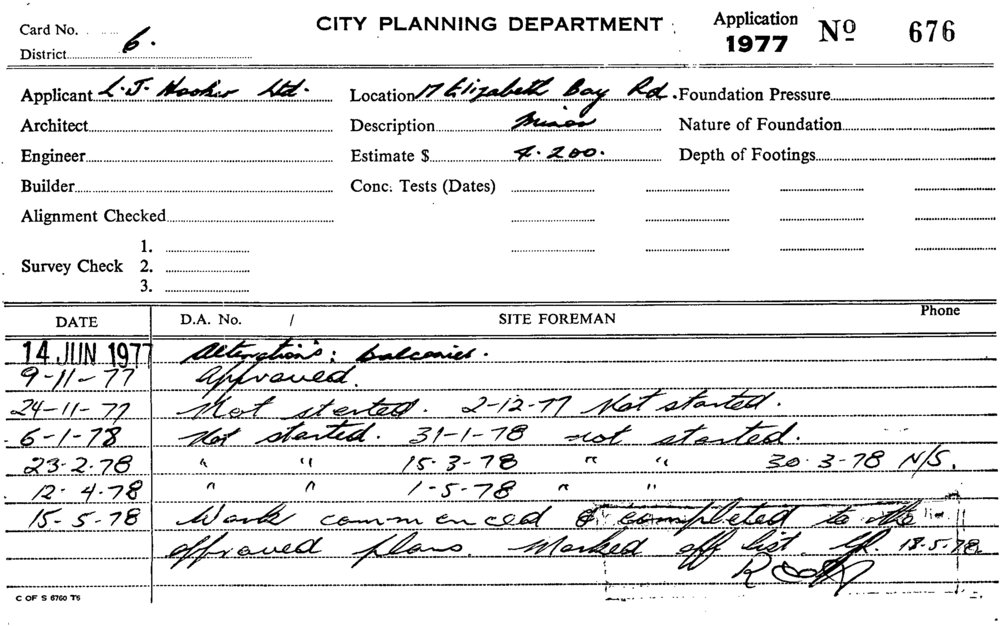 Card No. CITY PLANNING DEPARTMENT Application 1977 Nº 676
District 6.
Applicant L. J. Hooker Ltd. Location 17 Elizabeth Bay Rd. Foundation Pressure
Architect Description Minor Nature of Foundation
Engineer Estimate $ 4.200. Depth of Footings
Builder Conc. Tests (Dates)
Alignment Checked
1.
Survey Check 2.
3.
DATE D.A. No. / SITE FOREMAN Phone
14 JUN 1977 Alterations: balconies.
9-11-77 Approved.
24-11-77 Not started. 2-12-77 Not started.
6-1-78 Not started. 31-1-78 not started.
23-2-78 " " 15-3-78 " " 30-3-78 N/S.
12-4-78 " " 1-5-78 " "
15-5-78 Work commenced & completed to the
approved plans. Marked off list. 18-5-78
C OF S 6760 T6